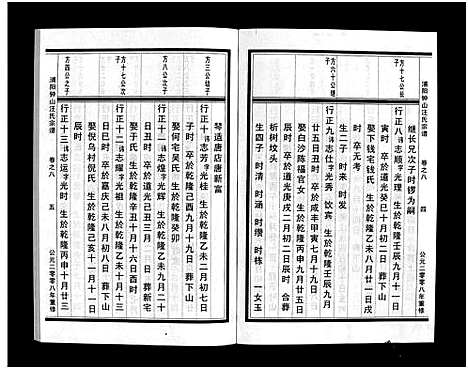 浦阳钟山汪氏宗谱 卷之八 四 公元二零零八年重修
方十七公长子
继长兄次子时锣为嗣
行正八 讳志顺 字光理 生於乾隆壬辰九月十一
寅时 卒於道光癸巳十月初三日 葬下山
娶下钱宅钱氏 生於乾隆乙未八月廿一日戌
时 卒无考
生二子 时来 时发
方六十公继子
行正九 讳志仕 字光秀 饮宾 生於乾隆壬辰九月
廿五日丑时 卒於咸丰甲寅七月十九日
娶白沙陈福官女 生於乾隆丙申九月廿五日
时 卒於道光庚戌二月初二日辰时 合葬
析树坟头
生四子 时清 时涵 时瓒 时栋 一女玉
琴适唐店唐新富
方三公继子
行正十 讳志芳 字光桂 生於乾隆乙未二月初七日
子时 卒於道光乙酉九月十九日 葬下山
娶何宅吴氏 生於乾隆癸卯
方八公次子
行正十一 讳志煌 字光辉 生於乾隆乙未九月二十
日丑时 卒於道光辛丑三月 日 葬新宅
娶于氏 生於乾隆辛丑十月十六日酉时
方十七公次子
行正十二 讳志耀 字光祖 生於乾隆乙未十月十三
日巳时 卒於嘉庆己未十月初八日 葬下山
娶倪乌村倪氏 生於乾隆己亥十一月十一日
方四公之子
行正十三 讳志运 字光时 生於乾隆丙申十月廿三
浦阳钟山汪氏宗谱 卷之八 五 公元二零零八年重修